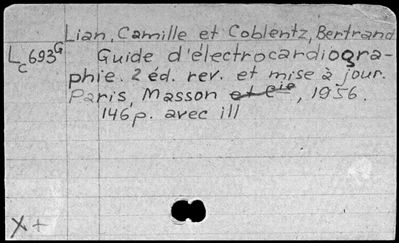 Lian, Camille et Coblentz, Bertrand
Lc693G Guide d'électrocardiogra-
phie. 2 éd. rev. et mise à jour.
Paris, Masson et Cie, 1956.
146p. avec ill
X+